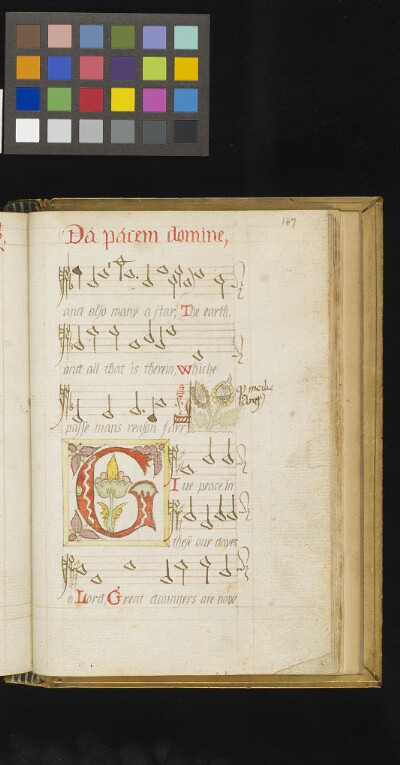 167
Da pacem domine,
and also many a star, The earth,
and all that is therein, whiche
passe mans reason farr,
Giue peace in
these our dayes
o Lord, Great daungers are now